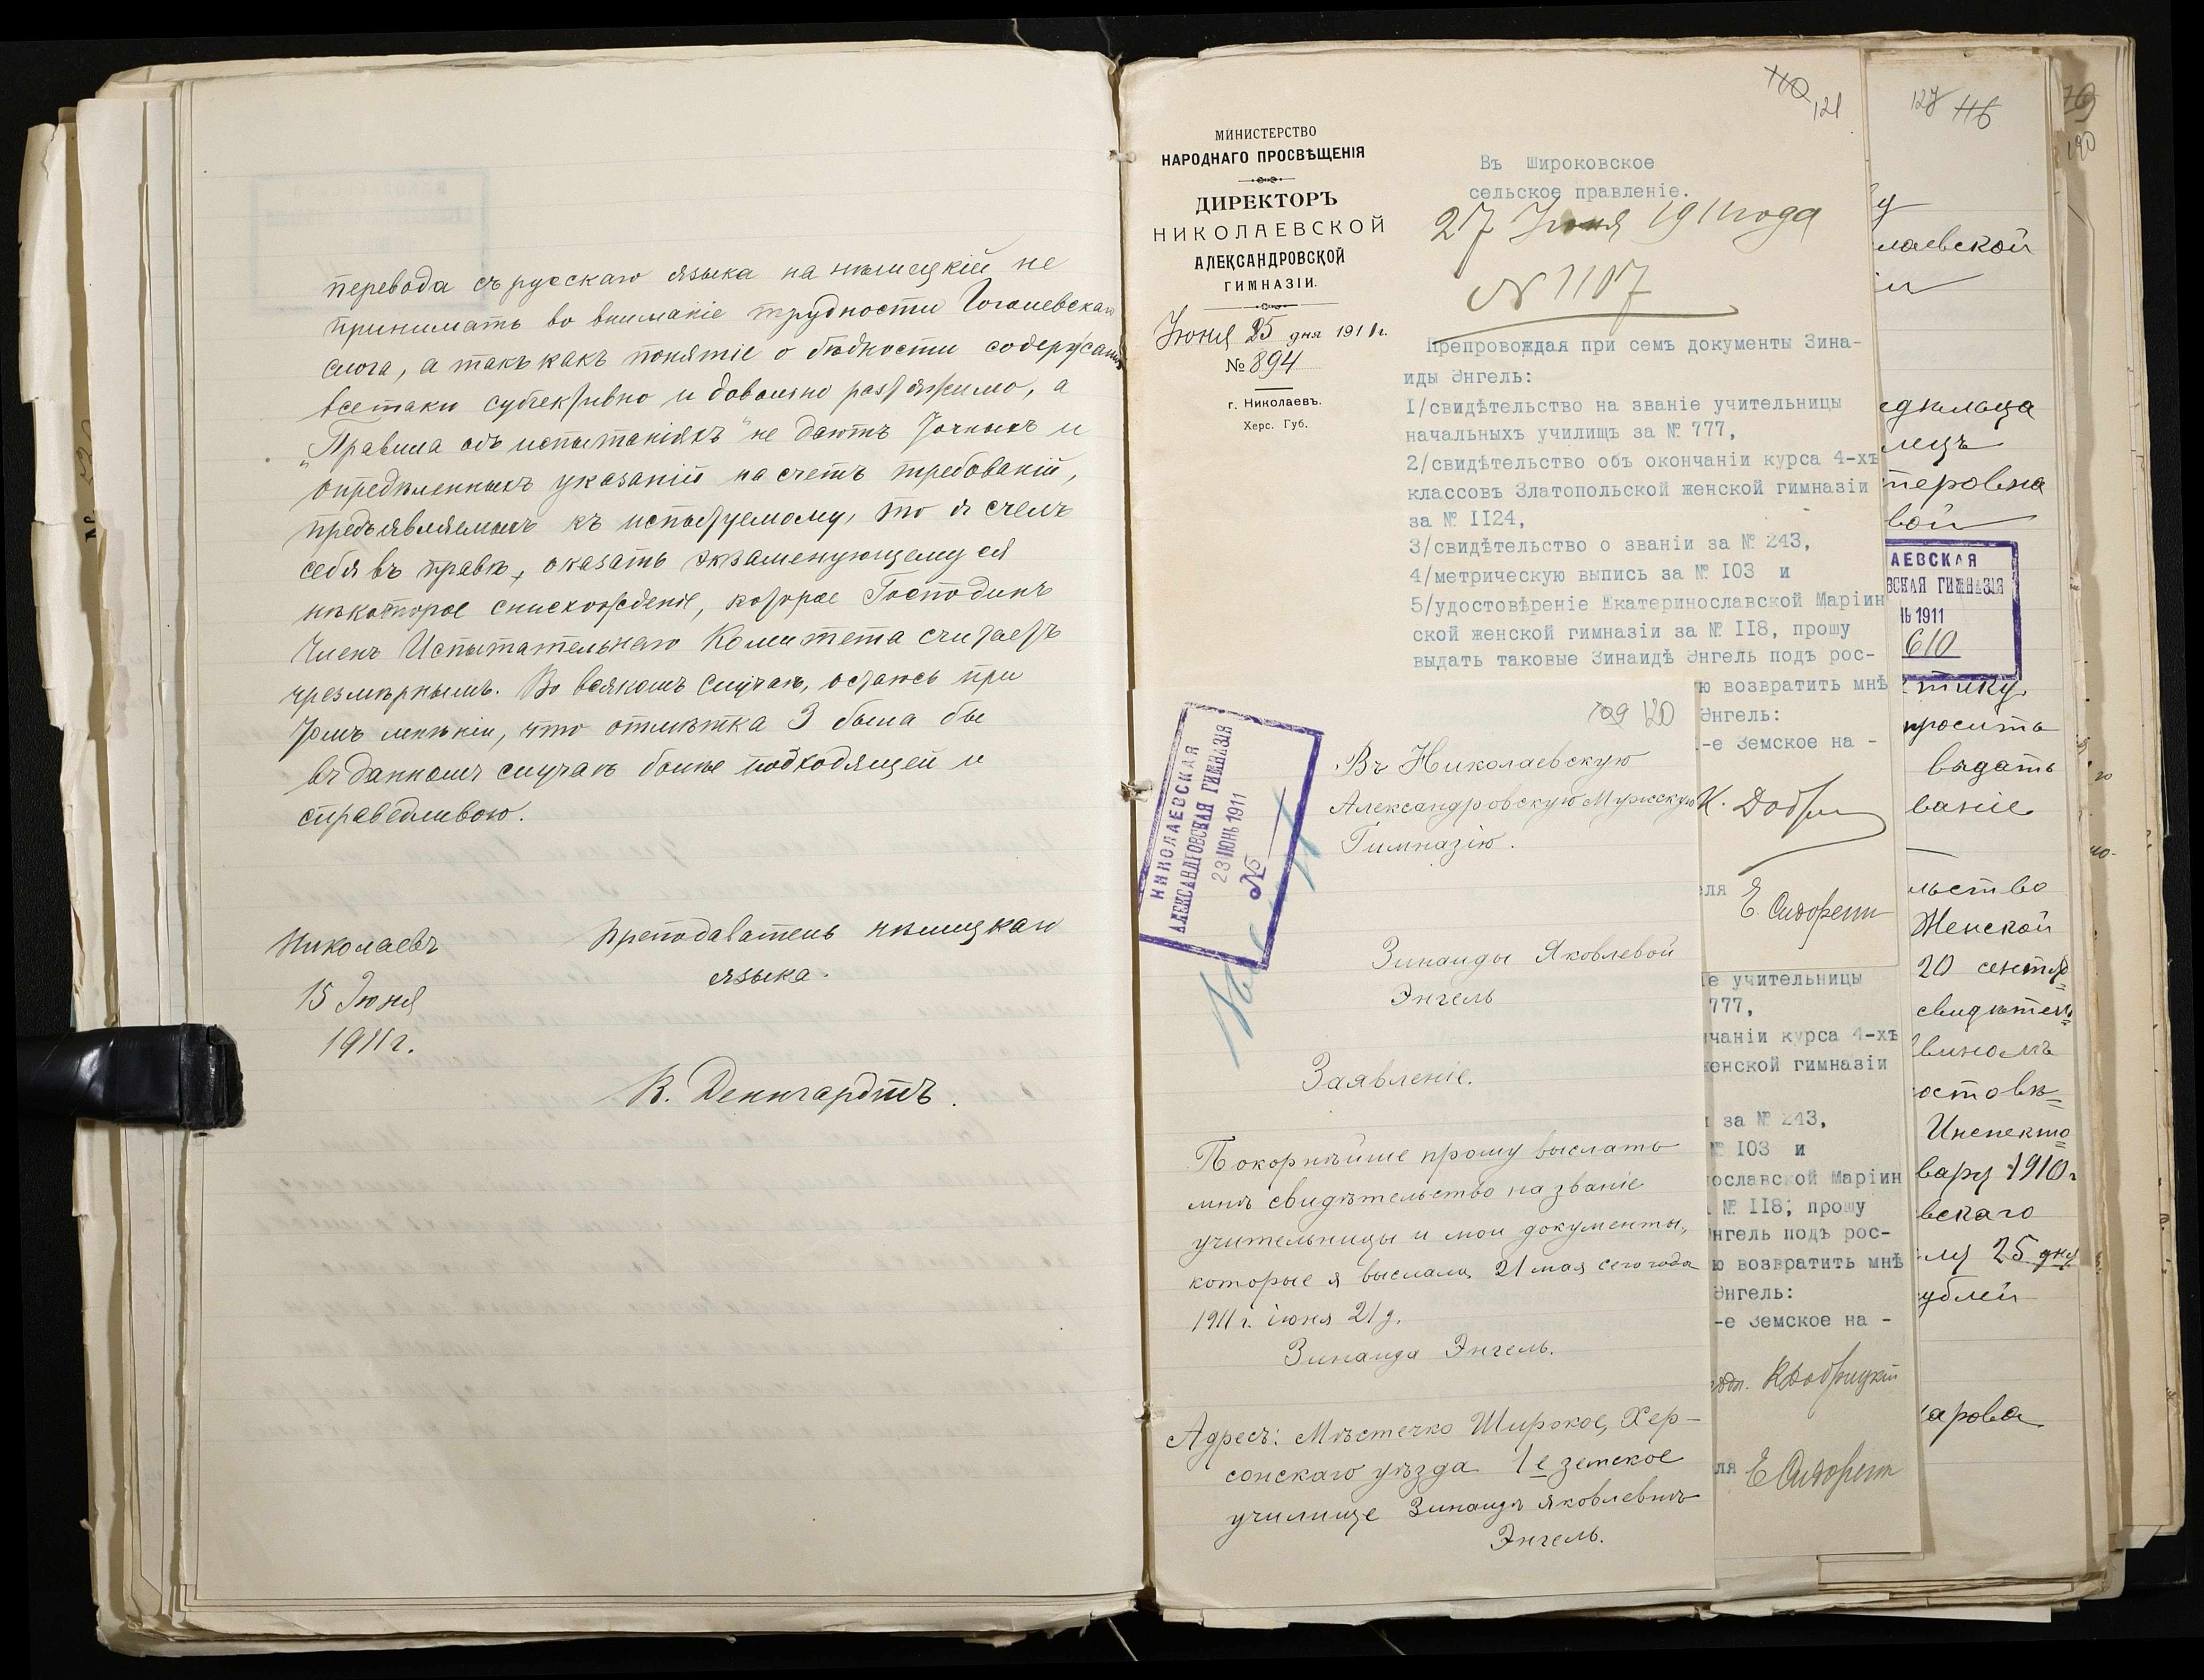 перевода съ русскаго языка на нѣмецкій не
принимать во вниманіе трудности Гоголевскаго
слога, а такъ какъ понятіе о бѣдности содержанія
всетаки субъективно и довольно растяжимо, а
„Правила объ испытаніяхъ" не даютъ точныхъ и
опредѣленныхъ указаній на счетъ требованій,
предъявляемыхъ къ испытуемому, то я счелъ
себя въ правѣ, оказать экзаменующемуся
нѣкоторое снисхожденіе, которое Господинъ
Членъ Испытательнаго Комитета считаетъ
чрезмѣрнымъ. Во всякомъ случаѣ, остаюсь при
томъ мнѣніи, что отмѣтка 3 была бы
въ данномъ случаѣ болѣе подходящей и
справедливою.
Николаевъ
15 Іюня
1911 г.
Преподаватель нѣмецкаго
языка.
В. Деннгардтъ.
110
121
МИНИСТЕРСТВО
НАРОДНАГО ПРОСВѢЩЕНІЯ
ДИРЕКТОРЪ
НИКОЛАЕВСКОЙ
АЛЕКСАНДРОВСКОЙ
ГИМНАЗІИ.
Іюня 25 дня 1911 г.
№ 894
г. Николаевъ.
Херс. Губ.
Въ Широковское
сельское правленіе.
27 Іюня 1911 года
№ 1107
Препровождая при семъ документы Зина-
иды Энгель:
I/свидѣтельство на званіе учительницы
начальныхъ училищъ за № 777,
2/свидѣтельство объ окончаніи курса 4-хъ
классовъ Златопольской женской гимназіи
за № II24,
3/свидѣтельство о званіи за № 243,
4/метрическую выпись за № I03 и
5/удостовѣреніе Екатеринославской Маріин
ской женской гимназіи за № II8, прошу
выдать таковые Зинаидѣ Энгель подъ рос-
ю возвратить мнѣ
Энгель:
-е Земское на -
К. Добр
ля Е. Сидорен
109 120
НИКОЛАЕВСКАЯ
АЛЕКСАНДРОВСКАЯ ГИМНАЗІЯ
23 ІЮНЬ 1911
№
Въ Николаевскую
Александровскую Мужскую
Гимназію.
Зинаиды Яковлевой
Энгель
Заявленіе.
Покорнѣйше прошу выслать
мнѣ свидѣтельство на званіе
учительницы и мои документы,
которые я выслала 21 мая сего года
1911 г. іюня 21 д.
Зинаида Энгель.
Адресъ: Мѣстечко Широкое, Хер-
сонскаго уѣзда 1е земское
училище Зинаидѣ Яковлевнѣ
Энгель.
іе учительницы
777,
нчаніи курса 4-хъ
женской гимназіи
и за № 243,
№ I03 и
ославской Маріин
№ II8; прошу
нгель подъ рос-
ю возвратить мнѣ
Энгель:
-е Земское на -
К Добрицкій
ля Е Сидорен
127 116
у
лаевской
ии
еднльца
лецъ
перовна
вой
АЕВСКАЯ
ВСКАЯ ГИМНАЗІЯ
НЬ 1911
610
тику
просить
выдать
ваніе
льство
Женской
20 сентя
свидѣтел
виномъ
остовѣ
Инспекто
варя 1910 г
вскаго
ля 25 дня
ублей
арова
79
190